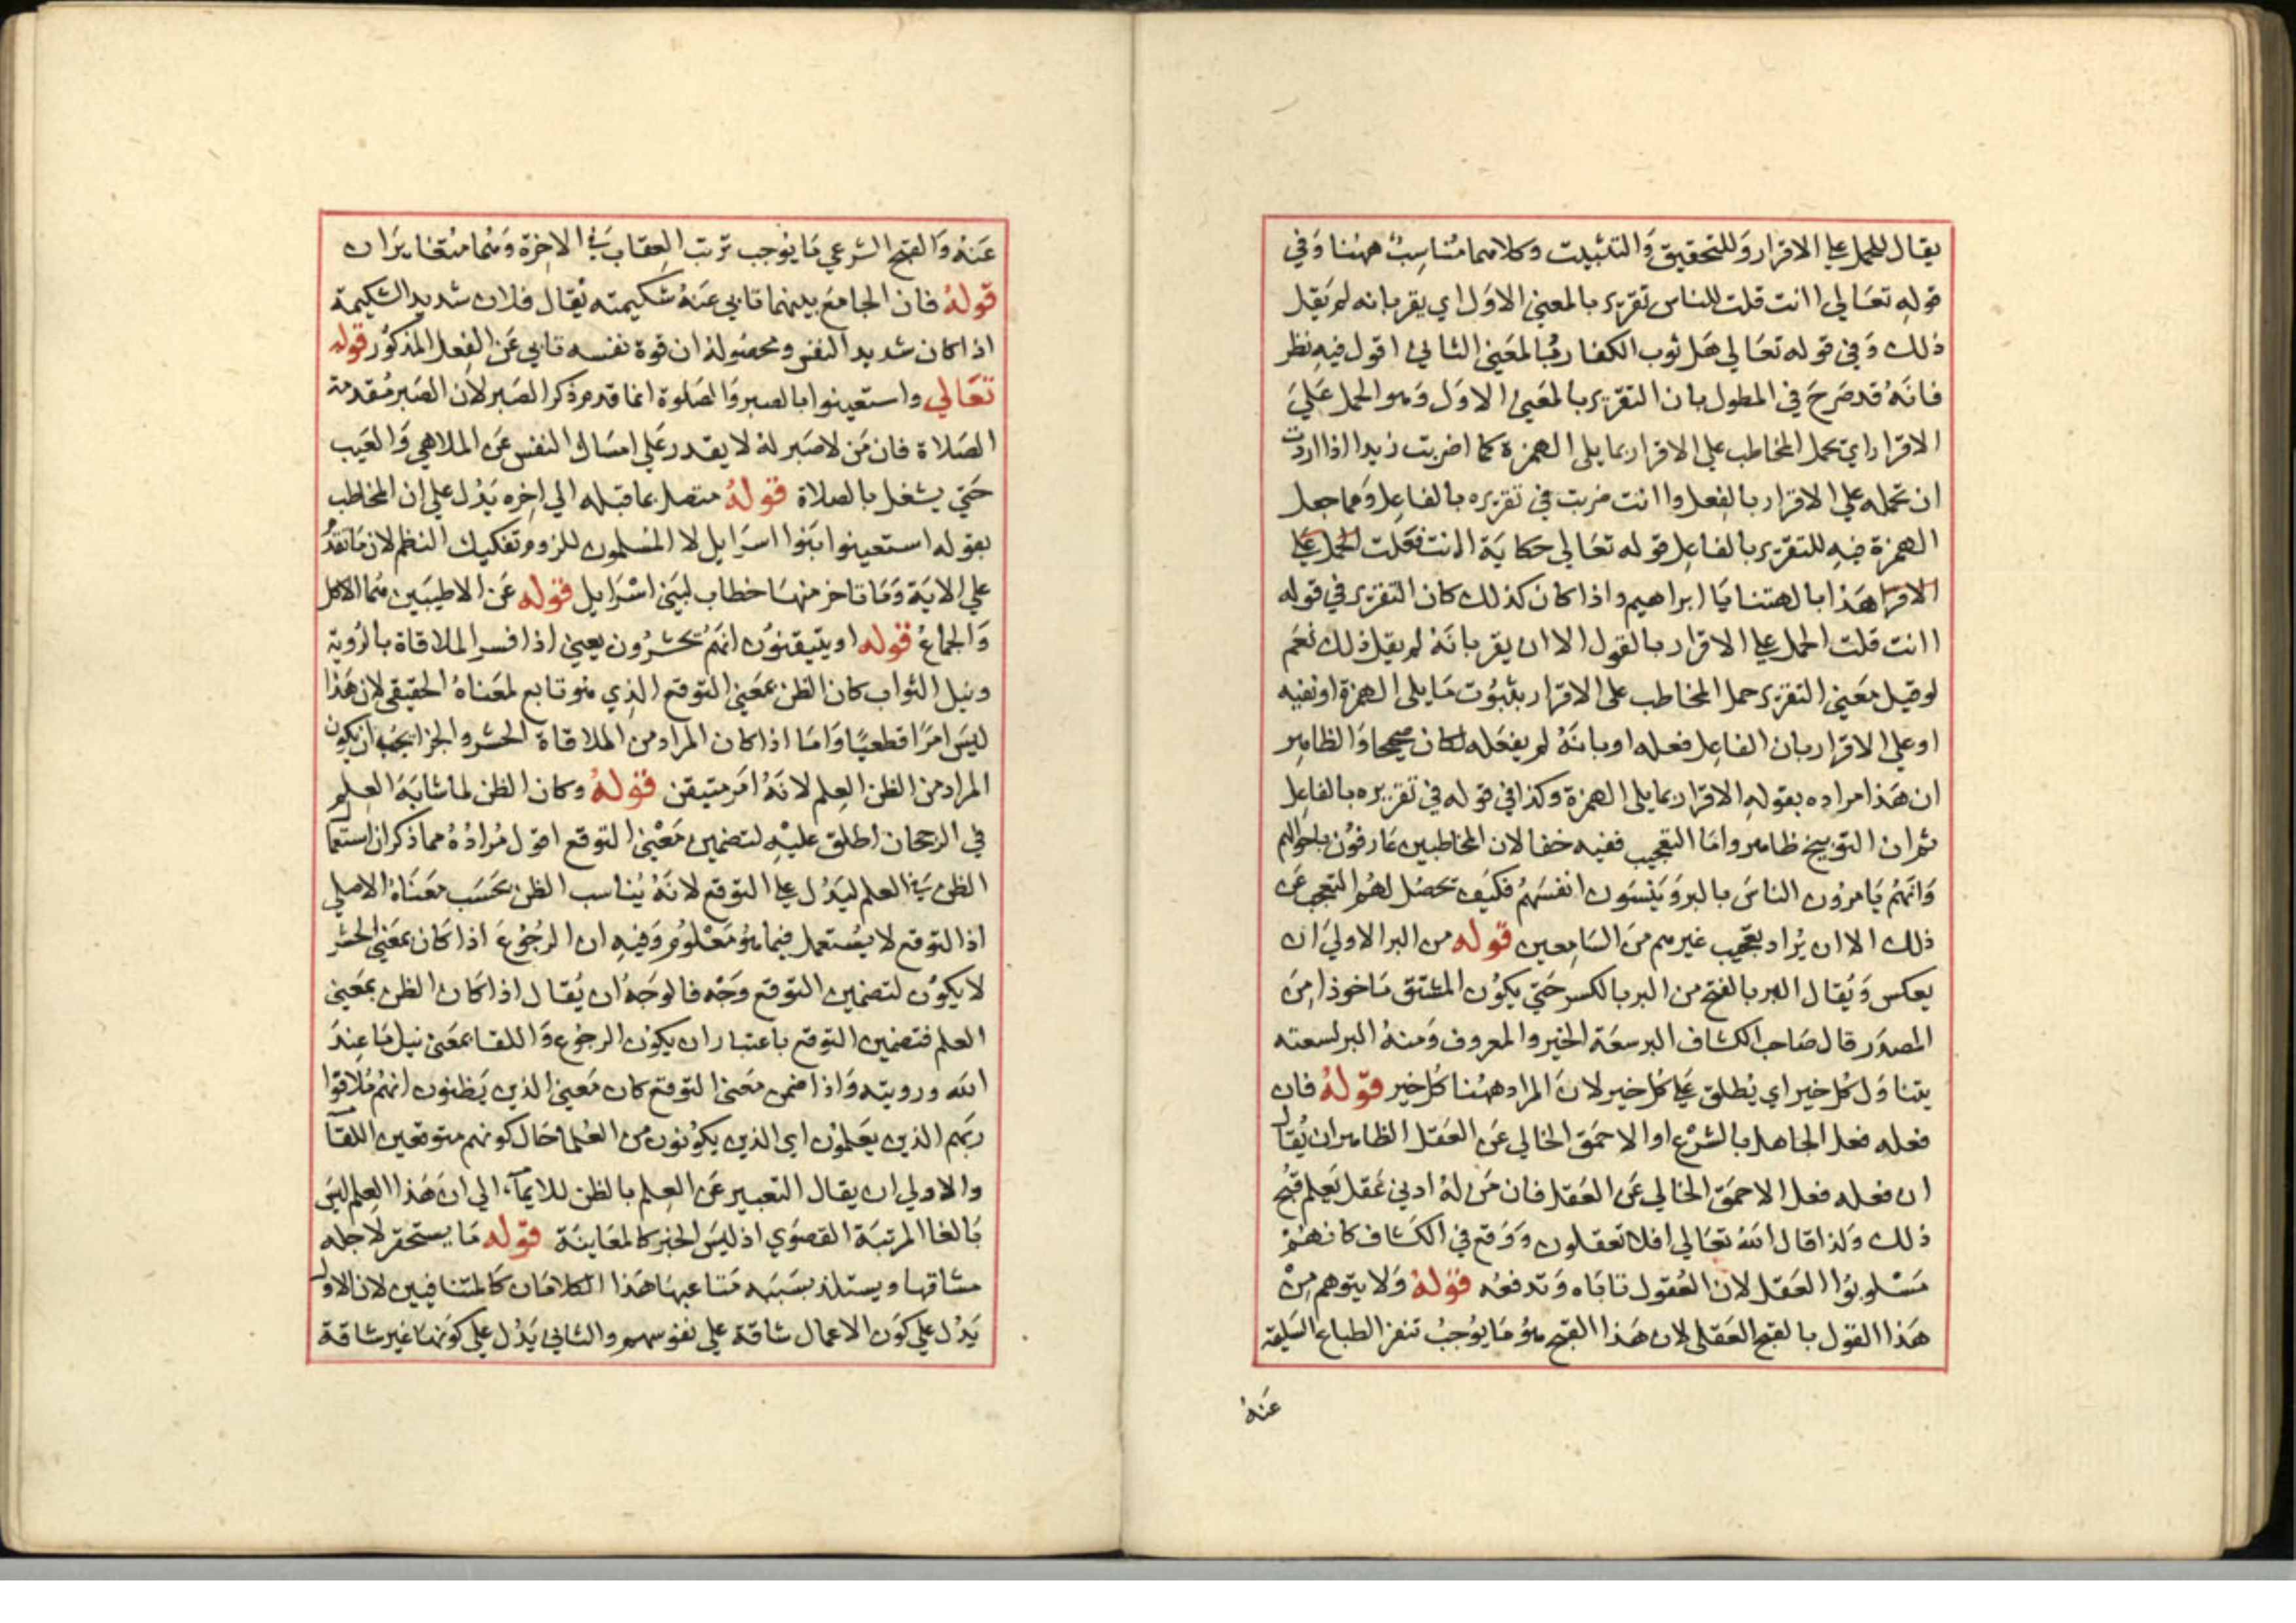 يقال للحمل علي الاقرار وللتحقيق والتثبيت وكلاهما مناسب ههنا وفي
قوله تعالي اانت قلت للناس تقرير بالمعني الاول اي يقر بانه لم يقل
ذلك وفي قوله تعالي هل ثوب الكفار بالمعني الثاني اقول فيه نظر
فانه قد صرح في المطول بان التقرير بالمعني الاول وهو الحمل علي
الاقرار اي تحمل المخاطب علي الاقرار بما يلي الهمزة كما اضربت زيدا اذا اردت
ان تحمله علي الاقرار بالفعل واانت ضربت في تقريره بالفاعل ومما جعل
الهمزة فيه للتقرير بالفاعل قوله تعالي حكاية اانت فعلت الحمل علي
الاقرا هذا بالهتنا يا ابراهيم واذا كان كذلك كان التقرير في قوله
اانت قلت الحمل علي الاقرار بالقول الا ان يقر بانه لم يقل ذلك نعم
لو قيل معني التقرير حمل المخاطب علي الاقرار بثبوت ما يلي الهمزة او نفيه
او علي الاقرار بان الفاعل فعله او بانه لم يفعله لكان صحيحا والظاهر
ان هذا مراده بقوله الاقرار بما يلي الهمزة وكذا في قوله في تقريره بالفاعل
ثم ان التوبيخ ظاهر واما التعجيب ففيه خفا لان المخاطبين عارفون باحوالهم
وانهم يامرون الناس بالبر وينسون انفسهم فكيف تحصل لهم التعجب عن
ذلك الا ان يراد تعجيب غيرهم من السامعين قوله من البر الاولي ان
يعكس ويقال البر بالفتح من البر بالكسر حتي يكون المشتق ماخوذا من
المصدر قال صاحب الكشاف البر سعة الخير والمعروف ومنه البر لسعته
يتناول كل خير اي يطلق علي كل خير لان المراد ههنا كل خير قوله فان
فعله فعل الجاهل بالشرع او الاحمق الخالي عن العقل الظاهر ان يقال
ان فعله فعل الاحمق الخالي عن العقل فان من له ادني عقل يعلم قبح
ذلك ولذا قال الله تعالي افلا تعقلون ووقع في الكشاف كانهم
مسلوبوا العقل لان العقول تاباه وتدفعه قوله ولا يتوهم من
هذا القول بالقبح العقلي لان هذا القبح هو ما يوجب تنفر الطباع السليمة
عنه
عنه والقبح الشرعي ما يوجب ترتب العقاب في الاخرة وهما متغايران
قوله فان الجامع بينهما تابي عنه شكيمته يقال فلان شديد الشكيمة
اذا كان شديد النفس ومحصوله ان قوة نفسه تابي عن الفعل المذكور قوله
تعالي واستعينوا بالصبر والصلوة انما قدم ذكر الصبر لان الصبر مقدمة
الصلاة فان من لا صبر له لا يقدر علي امساك النفس عن الملاهي والعيب
حتي يشغل بالصلاة قوله متصل بما قبله الي اخره يدل علي ان المخاطب
بقوله استعينوا بنوا اسرايل لا المسلمون للزوم تفكيك النظم لان ما تقدم
علي الاية وما تاخر منها خطاب لبني اسرايل قوله عن الاطيبين هما الاكل
والجماع قوله او يتيقنون انهم تحشرون يعني اذا فسر الملاقاة بالروية
ونيل الثواب كان الظن بمعني التوقع الذي هو تابع لمعناه الحقيقي لان هذا
ليس امرا قطعيا واما اذا كان المراد من الملاقاة الحشر والجزا يجب ان يكون
المراد من الظن العلم لانه امر متيقن قوله وكان الظن لما شابه العلم
في الرجحان اطلق عليه لتضمين معني التوقع اقول مراده مما ذكر ان استعما
الظن في العلم ليدل علي التوقع لانه يناسب الظن بحسب معناه الاصلي
اذ التوقع لا يستعمل فيما هو معلوم وفيه ان الرجوع اذا كان بمعني الحشر
لا يكون لتضمين التوقع وجه فالوجه ان يقال اذا كان الظن بمعني
العلم فتضمين التوقع باعتبار ان يكون الرجوع واللقا بمعني نيل ما عند
الله ورويته واذا ضمن معني التوقع كان معني الذين يظنون انهم ملاقوا
ربهم الذين يعلمون اي الذين يكونون من العلما حال كونهم متوقعين اللقآ
والاولي ان يقال التعبير عن العلم بالظن للايمآء الي ان هذا العلم ليس
بالغا المرتبة القصوي اذ ليس الخبر كالمعاينة قوله ما يستحقر لاجله
مشاقها ويستلذ بسببه متاعبها هذا الكلامان كالمتنافيين لان الاول
يدل علي كون الاعمال شاقة علي نفوسهم والثاني يدل علي كونها غير شاقة